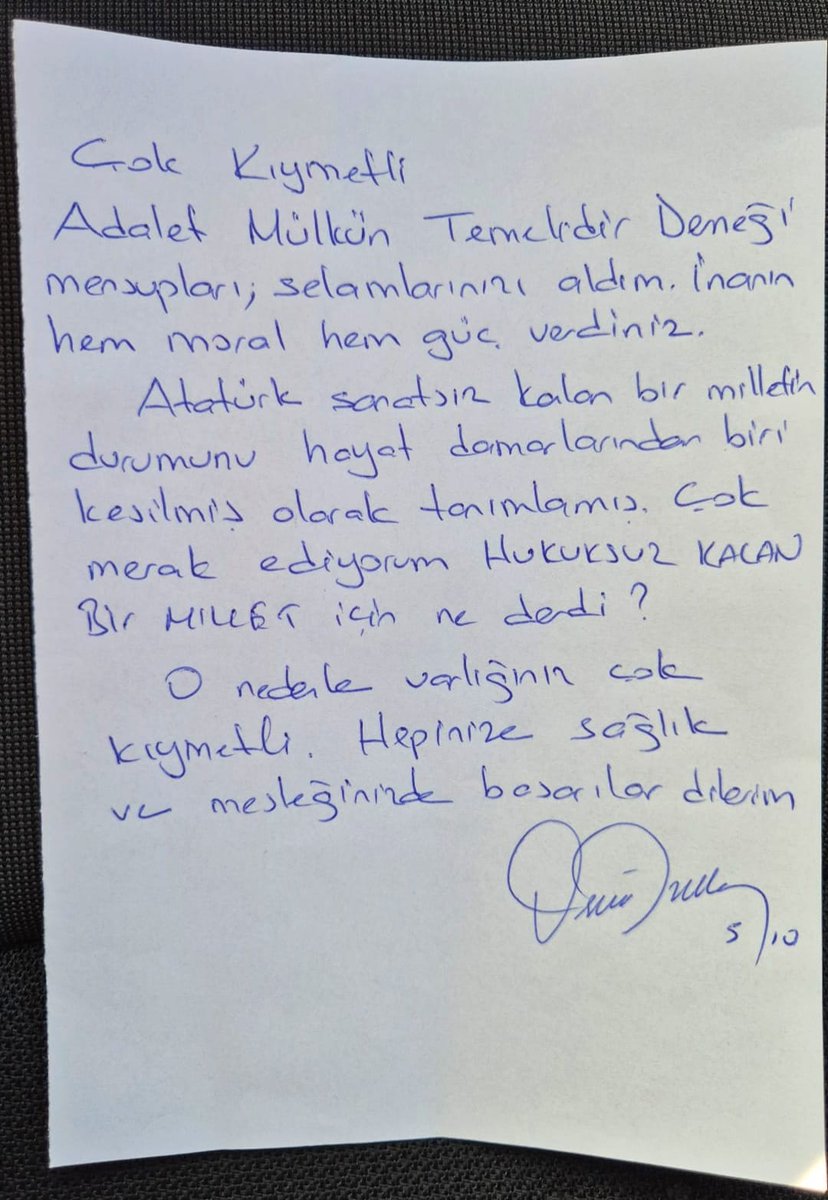 Çok Kıymetli
Adalet Mülkün Temelidir Deneği
mensupları; selamlarınızı aldım. İnanın
hem moral hem güç verdiniz.
Atatürk sanatsız kalan bir milletin
durumunu hayat damarlarından biri
kesilmiş olarak tanımlamış. Çok
merak ediyorum HUKUKSUZ KALAN
BİR MİLLET için ne derdi?
O nedenle varlığınız çok
kıymetli. Hepinize sağlık
ve mesleğinizde başarılar dilerim
5/10